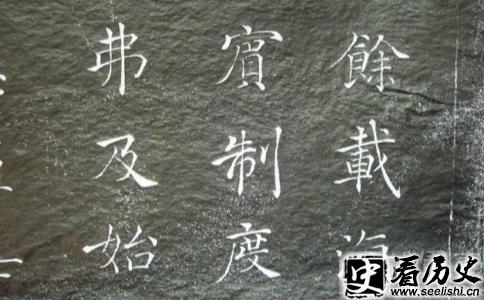 餘載
賓制度
弗及始
史看历史
www.seelishi.cn